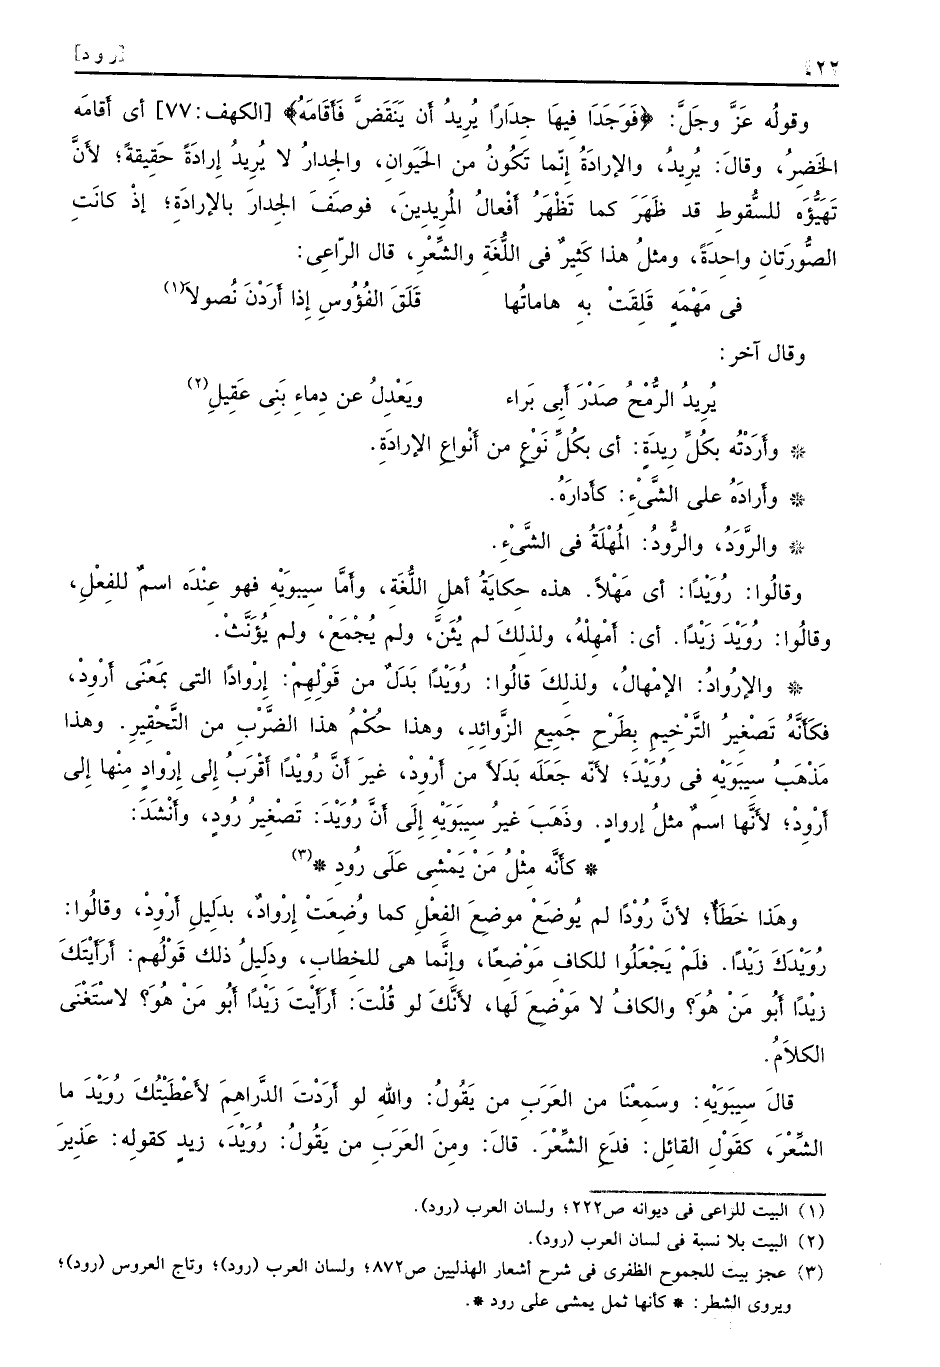 ٤٢٢
[رود]
وقولُه عَزَّ وجَلَّ: ﴿فَوَجَدَا فيهَا جِدَارًا يُرِيدُ أن يَنقَضَّ فَأَقَامَهُ﴾ [الكهف: ٧٧] أى أقامَه
الخَضِرُ، وقالَ: يُرِيدُ، والإرادَةُ إنّما تَكُونُ من الحَيَوانِ، والجِدارُ لا يُرِيدُ إرادَةً حَقِيقَةً؛ لأنَّ
تَهَيُّؤَه للسُّقوطِ قد ظَهَرَ كما تَظْهَرُ أفْعالُ المُرِيدِينَ، فوصَفَ الجِدارَ بالإرادَةِ؛ إذْ كانَت
الصُّورَتَانِ واحِدَةً، ومثلُ هذا كَثِيرٌ فى اللُّغَةِ والشِّعْرِ، قال الرّاعِى:
فى مَهْمَهٍ قَلِقَتْ بِهِ هاماتُها قَلَقَ الفُؤُوسِ إذا أَرَدْنَ نُصولاَ(١)
وقال آخر:
يُرِيدُ الرُّمْحُ صَدْرَ أَبِى بَراء ويَعْدِلُ عن دِماءِ بَنِى عَقِيلِ(٢)
* وأَرَدْتُه بكُلِّ رِيدَةٍ: أى بكُلِّ نَوْعٍ من أَنْواعِ الإرادَةِ.
* وأرادَهُ على الشَّىْءِ: كأَدارَهُ.
* والرَّوَدُ، والرُّودُ: المُهْلَةُ فى الشَّىْءِ.
وقالُوا: رُوَيْدًا: أى مَهْلاً. هذه حِكايَةُ أهلِ اللُّغَةِ، وأمَّا سِيبوَيْهِ فهو عِنْدَه اسمٌ للفِعْلِ،
وقالُوا: رُوَيْدَ زَيْدًا. أى: أَمْهِلْهُ، ولذلِكَ لم يُثَنَّ، ولم يُجْمَعْ، ولم يُؤَنَّثْ.
* والإرْوادُ: الإمْهالُ، ولذلِكَ قالُوا: رُوَيْدًا بَدَلٌ من قَوْلِهِمْ: إرْوادًا التى بمَعْنَى أَرْوِدْ،
فكأَنَّهُ تَصْغِيرُ التَّرْخِيمِ بِطَرْحِ جَمِيعِ الزَّوائِدِ، وهذا حُكْمُ هذا الضَّرْبِ من التَّحْقِيرِ. وهذا
مَذْهَبُ سِيبَوَيْهِ فى رُوَيْدَ؛ لأنّه جَعَلَه بَدَلاً من أَرْوِدْ، غيرَ أنَّ رُوَيْدًا أقْرَبُ إلى إرْوادٍ منْها إلى
أَرْوِدْ؛ لأنَّها اسمٌ مثلُ إروادٍ. وذَهَبَ غيرُ سِيبَوَيْهِ إلى أنَّ رُوَيْدَ: تَصْغِيرُ رُودٍ، وأَنْشَدَ:
* كأنَّه مِثْلُ مَنْ يَمْشِى عَلَى رُودِ *(٣)
وهَذا خَطَأٌ؛ لأنَّ رُوْدًا لم يُوضَعْ موضِعَ الفِعْلِ كما وُضِعَتْ إرْوادٌ، بدَلِيلِ أَرْوِدْ، وقالُوا:
رُوَيْدَكَ زَيْدًا. فلَمْ يَجْعَلُوا للكافِ مَوْضِعًا، وإنَّما هى للخِطابِ، ودَلِيلُ ذلك قَوْلُهم: أَرَأَيْتَكَ
زيْدًا أبُو مَنْ هُوَ؟ والكافُ لا مَوْضِعَ لَها، لأنَّكَ لو قُلْتَ: أرَأَيْتَ زَيْدًا أبُو مَنْ هُوَ؟ لاسْتَغْنَى
الكلاَمُ.
قالَ سِيبَوَيْهِ: وسَمِعْنَا من العَرَبِ من يَقُولُ: واللهِ لو أرَدْتَ الدَّراهِمَ لأَعْطَيْتُكَ رُوَيْدَ ما
الشِّعْرَ، كقَوْلِ القائِلِ: فدَعِ الشِّعْرَ. قالَ: ومِنَ العَرَبِ من يَقُولُ: رُوَيْدَ، زيدٍ كقوله: عَذِيرَ
(١) البيت للراعى فى ديوانه ص٢٢٢؛ ولسان العرب (رود).
(٢) البيت بلا نسبة فى لسان العرب (رود).
(٣) عجز بيت للجموح الظفرى فى شرح أشعار الهذليين ص٨٧٢؛ ولسان العرب (رود)؛ وتاج العروس (رود)؛
ويروى الشطر: * كأنها ثمل يمشى على رود *.